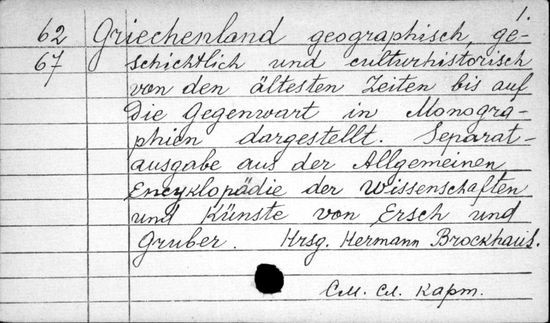 1.
62 Griechenland geographisch, ge-
67 schichtlich und culturhistorisch
von den ältesten Zeiten bis auf
die Gegenwart in Monogra-
phien dargestellt. Separat-
ausgabe aus der Allgemeinen
Encyklopädie der Wissenschaften
und Künste von Ersch und
Gruber. Hrsg. Hermann Brockhaus.
См. сл. карт.